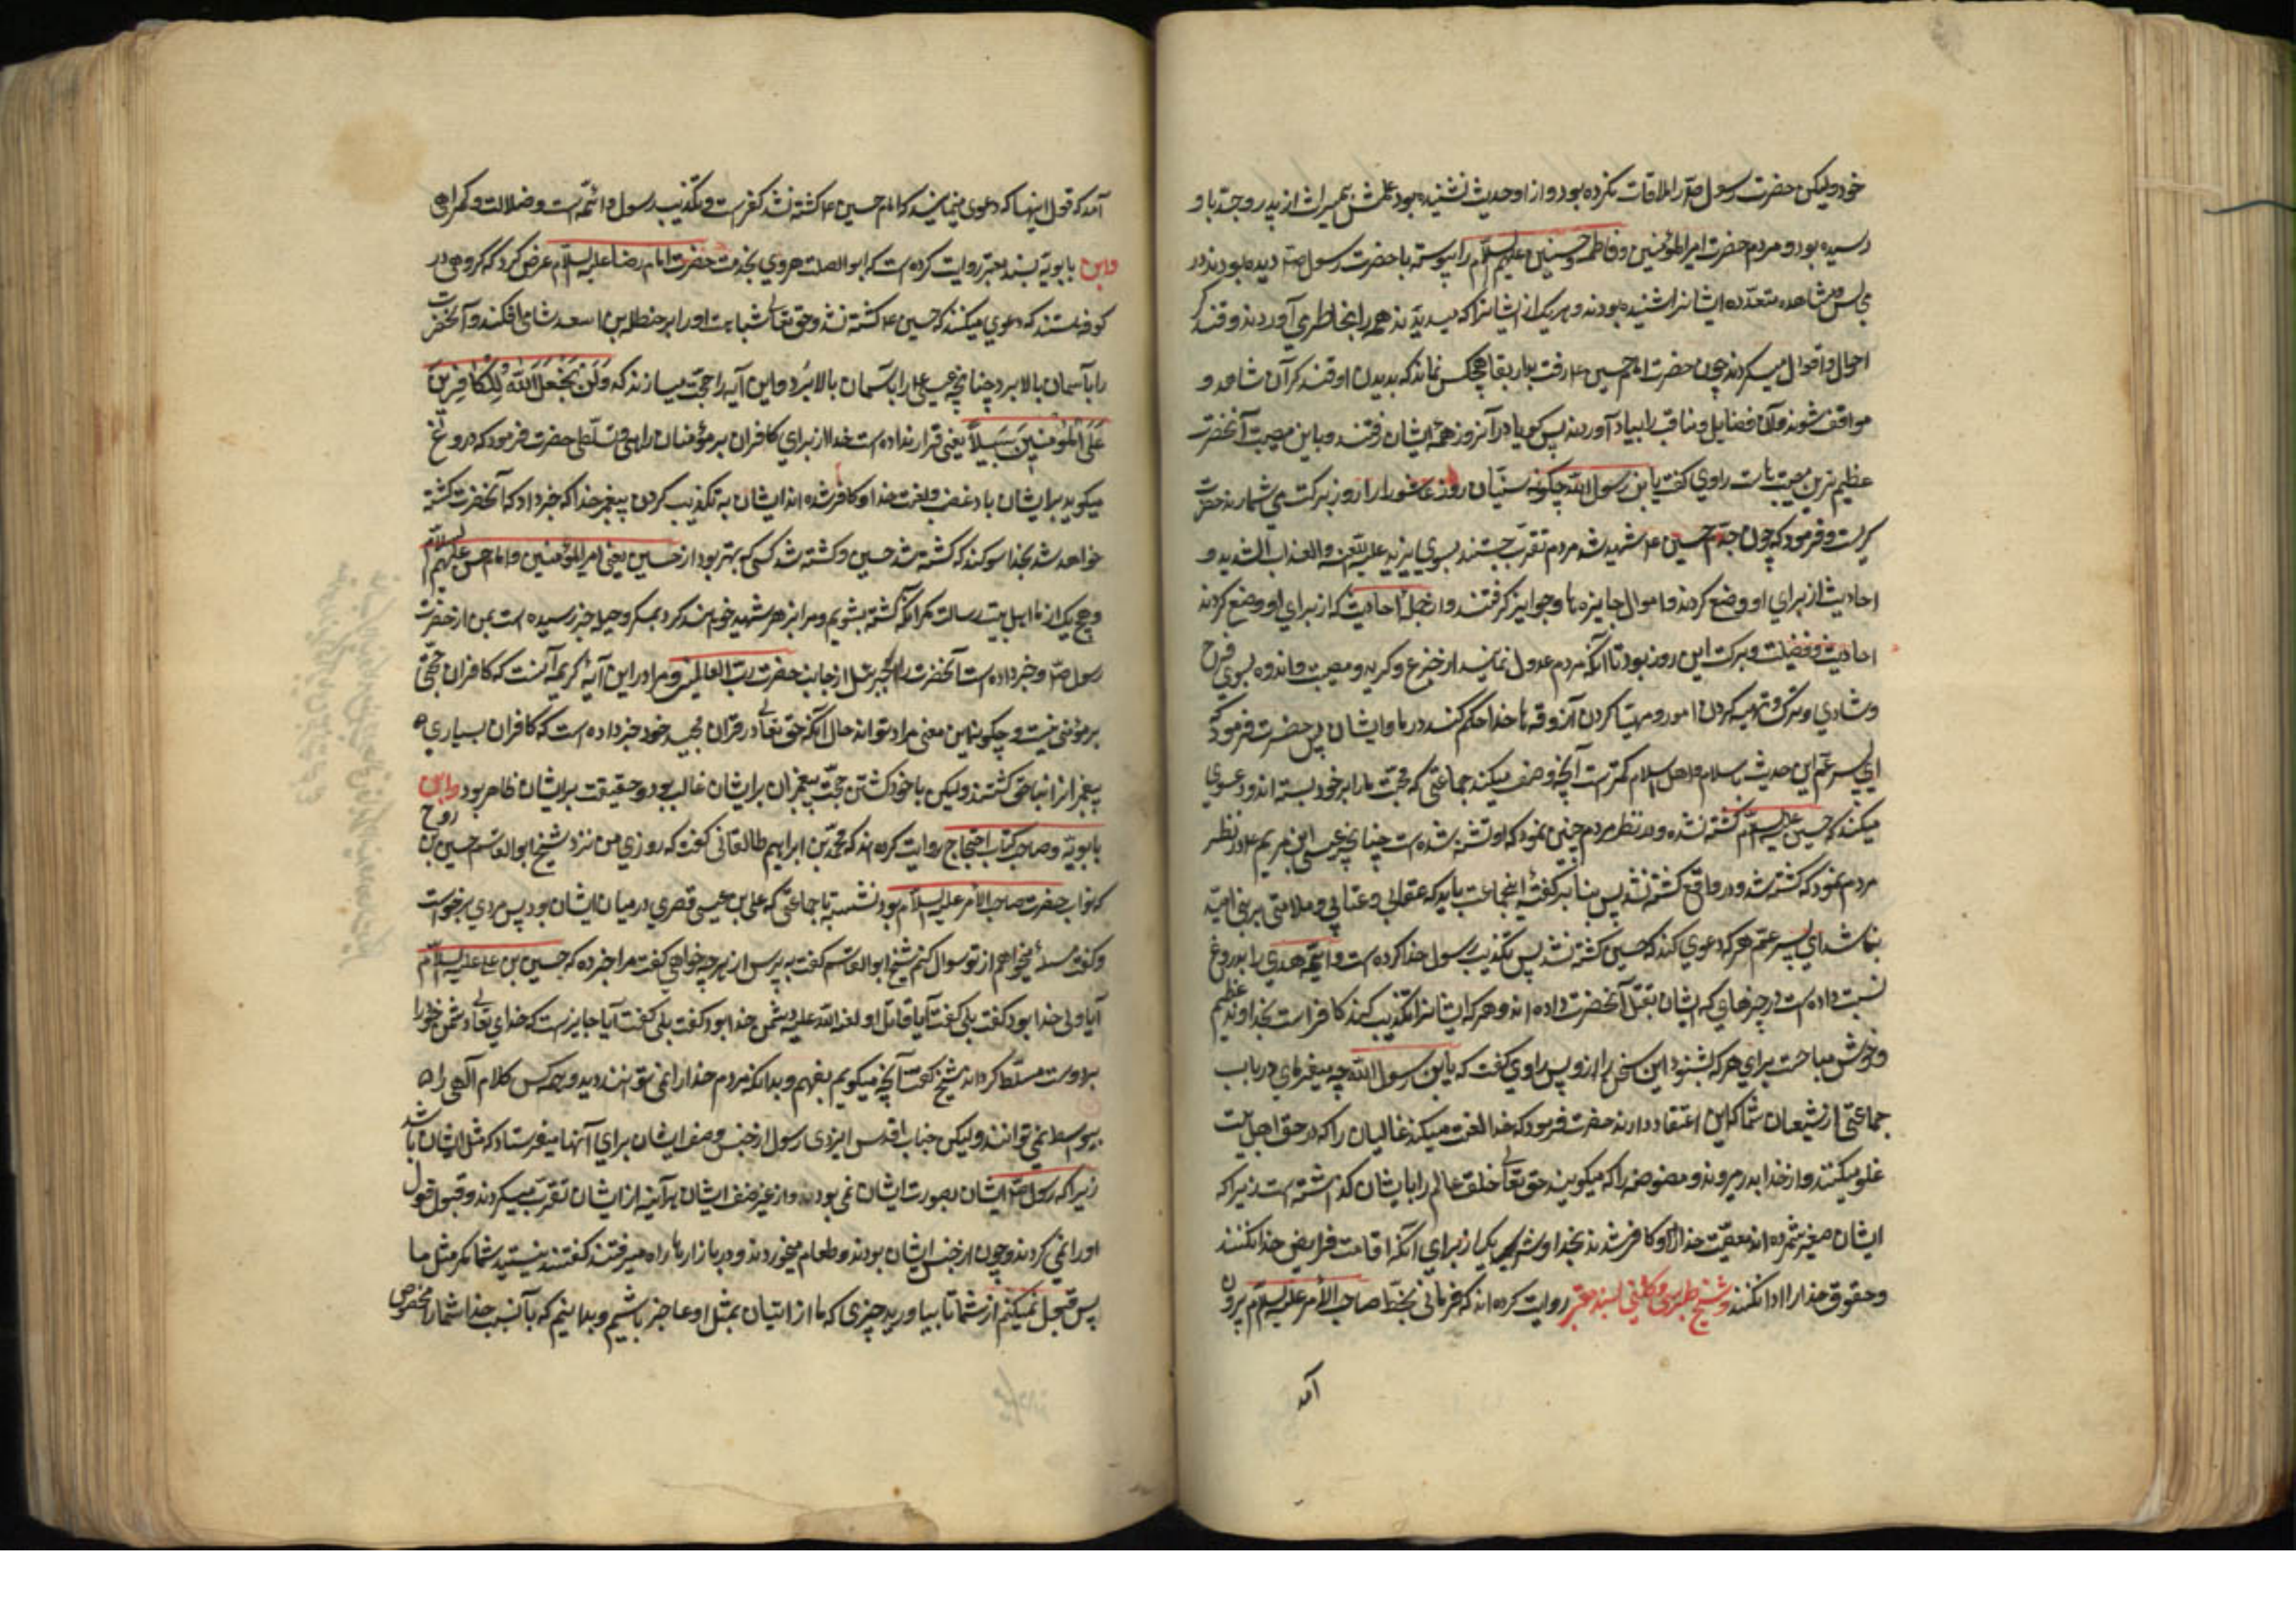 خود ولیکن حضرت رسول صٓ را ملاقات نکرده بود و از او حدیث نشنیده بود علمش بمیراث از پدر و جد باو
رسیده بود و مردم حضرت امیر المؤمنین و فاطمه و حسنین علیهم السلام را پیوسته با حضرت رسول صٓ دیده بودند در
مجالس و مشاهده متعدده ایشانرا شنیده بودند و هر یک از ایشانرا که میدیدند همه را بخاطر می آوردند و تذکر
احوال و اقوال میکردند چون حضرت امام حسین ۴ رفت بدار بقا هیچکس نماند که بدیدن او تذکر آن شاهد و
مواقف شوند و آن فضایل و مناقب را بیاد آورند پس گویا در آنروز همه ایشان رفتند و باین مصیبت آنحضرت
عظیم ترین مصیبتهاست راوی گفت یا بن رسول الله چگونه سنیان روز عاشورا را روز برکت می شمارند حضرت
گریست و فرمود که چون جدم حسین ۴ شهید شد مردم تقرب جستند بسوی یزید علیه اللعنه و العذاب الشدید و
احادیث از برای او وضع کردند و اموال جایزه ها و جوایز گرفتند و از جمله احادیث که از برای او وضع کردند
احادیث و فضیلت و برکت این روز بود تا آنکه مردم عدول نمایند از جزع و گریه و مصیبت و اندوه بسوی فرح
و شادی و تبرک و تهیه کردن امور و مهیا کردن آذوقه ها خدا حکم کند در ما و ایشان پس حضرت فرمود که
ای پسر عم این حدیث باسلام و اهل اسلام کمترست آنچه وصف میکند جماعتی که محبت ما را بر خود بسته اند و دعوی
میکنند که حسین علیه السلام کشته نشده و در نظر مردم چنین نمود که او کشته شده است چنانچه عیسی ابن مریم ۴ در نظر
مردم نمود که کشته شد و در واقع کشته نشد پس بنا بر گفته اینجماعت باید که عقابی و عتابی و ملامتی بر بنی امیه
نباشد ای پسر عم هر که دعوی کند که حسین کشته نشد پس تکذیب رسول خدا کرده است و ائمه هدی را بدروغ
نسبت داده است در خبرهایی که ایشان بقتل آنحضرت داده اند و هر که ایشانرا تکذیب کند کافر است بخداوند عظیم
و خونش مباحست برای هر که بشنود این سخن را از و پس راوی گفت که یا بن رسول الله چه میفرمای در باب
جماعتی از شیعیان شما که این اعتقاد دارند حضرت فرمود که خدا لعنت میکند غالیان را که در حق اهل بیت
غلو میکنند و از خدا بدر میروند و مفوضه را که میگویند حق تعالی خلق عالم را بایشان گذاشته است زیرا که
ایشان صغیر شمرده اند معصیت خدا را و کافر شدند بخدا و شریک از برای آنکه اقامت فرایض خدا نکنند
و حقوق خدا را ادا نکنند و شیخ طبرسی و کلینی بسند معتبر روایت کرده اند که فرمانی بخط صاحب الامر علیه السلام بیرون
آمد
آمد که قول اینها که دعوی مینمایند که امام حسین ۴ کشته نشد کفرست و تکذیب رسول و ائمه است و ضلالت و گمراهی
و ابن بابویه بسند معتبر روایت کرده است که ابو الصلت هروی بخدمت حضرت امام رضا علیه السلام عرض کرد که گروهی در
کوفه هستند که دعوی میکنند که حسین ۴ کشته نشد و حق تعالی شباهت او را بر حنظلة بن اسعد شامی افکند و آنحضرت
را بآسمان بالا برد چنانچه عیسی ۴ را بآسمان بالا برد و این آیه را حجت میسازند که وَلَنْ یَجْعَلَ اللهُ لِلْکافِرِینَ
عَلَی الْمُؤْمِنِینَ سَبِیلاً یعنی قرار نداده است خدا از برای کافران بر مؤمنان راهی و تسلطی حضرت فرمود که دروغ
میگویند بر ایشان باد غضب و لعنت خدا و کافر شده اند ایشان به تکذیب کردن پیغمبر خدا که خبر داد که آنحضرت کشته
خواهد شد بخدا سوگند که کشته شد حسین و کشته شد کسی که بهتر بود از حسین یعنی امیر المؤمنین و امام حسن علیهم السلام
و هیچ یک از ما اهل بیت رسالت مگر آنکه کشته بشویم و مرا بزهر شهید خواهند کرد بمکر و حیله خبر رسیده است بمن از حضرت
رسول صٓ و خبر داده است آنحضرت را جبرئیل از جانب حضرت رب العالمین و مراد در این آیه کریمه آنست که کافران حجتی
بر مؤمنی نیست و چگونه این معنی مراد تواند حال آنکه حق تعالی در قران مجید خود خبر داده است که کافران بسیاری
پیغمبرانرا بناحق کشتند ولیکن با خود کشتن حجت پیغمبران بر ایشان غالب بود و حقیقت بر ایشان ظاهر بود و ابن
بابویه و صاحب کتاب احتجاج روایت کرده اند که محمد بن ابراهیم طالقانی گفت که روزی من نزد شیخ ابو القاسم حسین بن روح
که نواب حضرت صاحب الامر علیه السلام بود نشسته با جماعتی که علی بن عیسی قصری در میان ایشان بود پس مردی برخواست
و گفت مسئله میخواهم از تو سوال کنم شیخ ابو القاسم گفت به پرس از هر چه خواهی گفت مرا خبر ده که حسین بن علی علیه السلام
آیا ولی خدا بود گفت بلی گفت آیا قاتل او لعنة الله علیه دشمن خدا بود گفت بلی گفت آیا جایزست که خدای تعالی دشمن خود را
بر دوست مسلط گرداند شیخ گفت آنچه میگویم بفهم و بدانکه مردم خدا را نمی توانند دید و همه کس کلام الهی را
بیواسطه نمی توانند ولیکن جناب اقدس ایزدی رسول از جنس و صنف ایشان برای آنها میفرستاد که مثل ایشان باشد
زیرا که رسول صٓ ایشان بصورت ایشان نمی بودند و از غیر صنف ایشان هر آینه از ایشان تقرب میکردند و قبول قول
او را نمی کردند و چون از جنس ایشان بودند و طعام میخوردند و در بازارها راه میرفتند گفتند نیستید شما مگر مثل ما
پس قبول نمیکنیم از شما تا بیاورید چیزی که ما از اتیان بمثل او عاجز باشیم و بدانیم که بآنسبب خدا شما را مخصوص